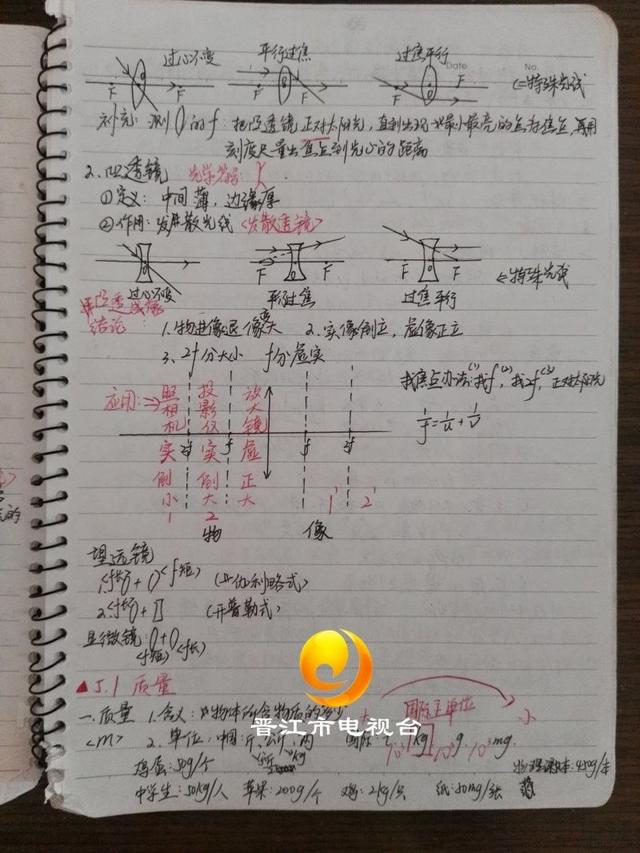 过心不变 平行过焦 过焦平行
Date No.
F F F F F F <=特殊光线
补充:测()的f:把凸透镜正对太阳光,直到出现最小最亮的点为焦点,再用
刻度尺量出焦点到光心的距离
2.凹透镜 光学符号:
①定义:中间薄,边缘厚
②作用:发散光线<发散透镜>
F F F F F F <=特殊光线
过心不变 平行过焦 过焦平行
凸透镜成像
结论: 1.物进像退像变大 2.实像倒立,虚像正立
3、2f分大小 f分虚实
找焦点办法:(1)找f,(2)找2f,(3)正对太阳光
1/f=1/u+1/v
应用: 照相机 投影仪 放大镜
2f f f 2f
实 实 虚
倒 倒 正
小 大 大
1 2 1' 2'
物 像
望远镜
1.<f长>()+()<f短> (开普勒式)
2.<f长>()+ (伽利略式)
显微镜:()+()
<f短> <f长>
▲5.1 质量
国际主单位
一.质量 1.含义:物体所含物质的多少 大 小
<m> 2.单位:中国:斤、公斤、两 国际:t 10³ kg 10³ g 10³ mg
鸡蛋:50g/个 物理课本:450g/本
中学生:50kg/人 苹果:200g/个 鸡:2kg/只 纸:80mg/张
晋江市电视台